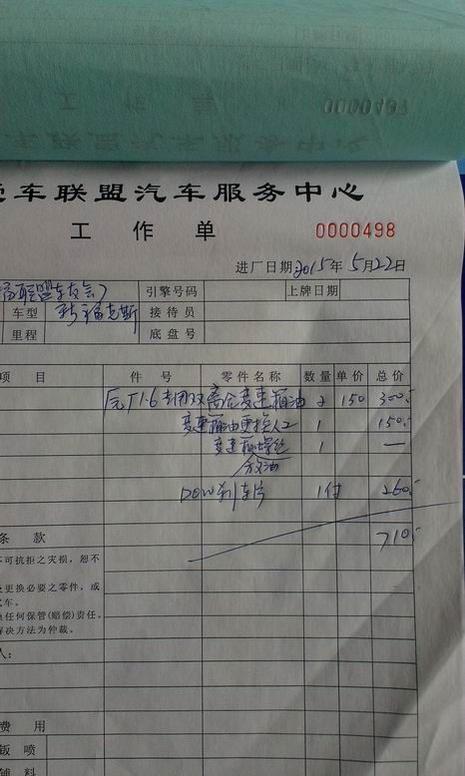 工 作 单
0000497
车联盟汽车服务中心
车联盟汽车服务中心
工 作 单 0000498
进厂日期2015年5月22日
联盟车友会) 引擎号码 上牌日期
车型 新福克斯 接待员
里程 底盘号
项 目 件 号 零件名称 数量 单价 总价
1.6专用双离合变速箱油 2 150 300
变速箱油更换人工 1 150
变速箱螺丝 1 —
放油
刹车片 1付 260
710
条 款
不可抗拒之灾损，恕不
更换必要之零件，或
汽车。
任何保管(赔偿)责任。
解决方法为仲裁。
人：
费 用
钣 喷
辅 料